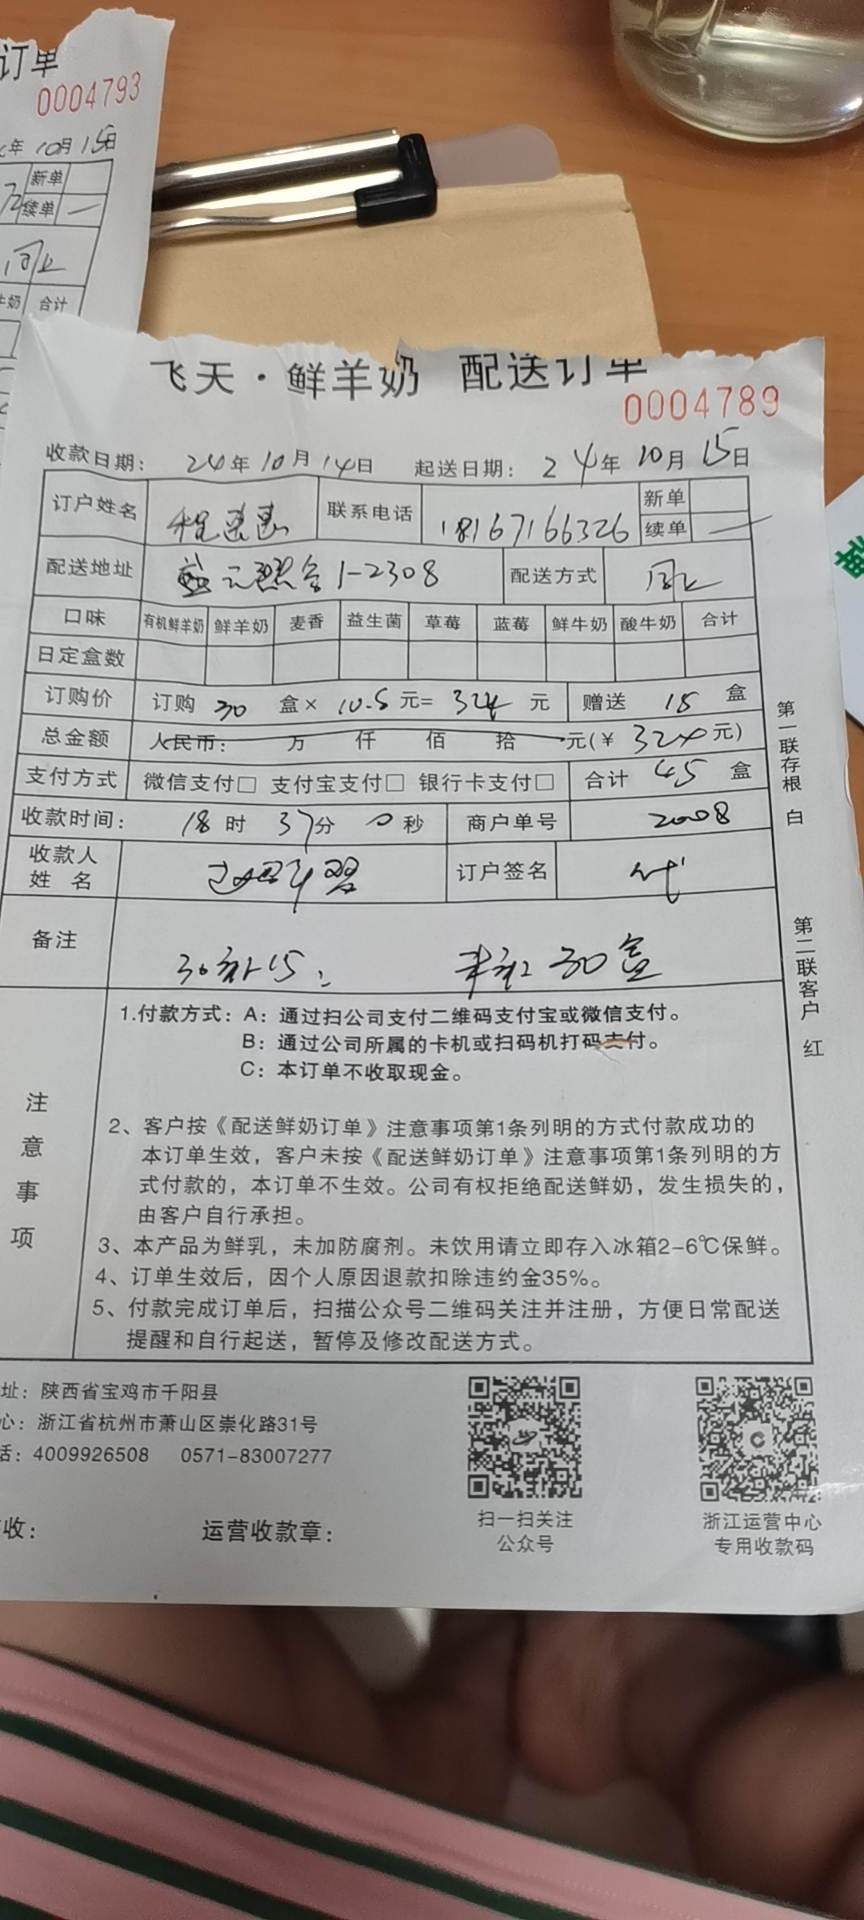 订单
0004793
年 10月 15日
新单
续单 —
同上
牛奶 合计
飞天·鲜羊奶 配送订单
0004789
收款日期: 24年10月14日 起送日期: 24年10月15日
订户姓名 程惠惠 联系电话 18167166326 新单
续单 —
配送地址 云 1-2308 配送方式 同上
口味 有机鲜羊奶 鲜羊奶 麦香 益生菌 草莓 蓝莓 鲜牛奶 酸牛奶 合计
日定盒数
订购价 订购 30 盒× 10.8 元= 324 元 赠送 15 盒
总金额 人民币: 万 仟 佰 拾 元(¥ 324元)
支付方式 微信支付□ 支付宝支付□ 银行卡支付□ 合计 45 盒
收款时间: 18时 37分 0秒 商户单号 2008
收款人
姓 名 订户签名 代
备注 30补15; 30盒
注意事项
1.付款方式: A: 通过扫公司支付二维码支付宝或微信支付。
B: 通过公司所属的卡机或扫码机打码支付。
C: 本订单不收取现金。
2、客户按《配送鲜奶订单》注意事项第1条列明的方式付款成功的
本订单生效，客户未按《配送鲜奶订单》注意事项第1条列明的方
式付款的，本订单不生效。公司有权拒绝配送鲜奶，发生损失的，
由客户自行承担。
3、本产品为鲜乳，未加防腐剂。未饮用请立即存入冰箱2-6℃保鲜。
4、订单生效后，因个人原因退款扣除违约金35%。
5、付款完成订单后，扫描公众号二维码关注并注册，方便日常配送
提醒和自行起送，暂停及修改配送方式。
第一联存根 白
第二联客户 红
址: 陕西省宝鸡市千阳县
心: 浙江省杭州市萧山区崇化路31号
话: 4009926508 0571-83007277
收: 运营收款章:
扫一扫关注
公众号
浙江运营中心
专用收款码